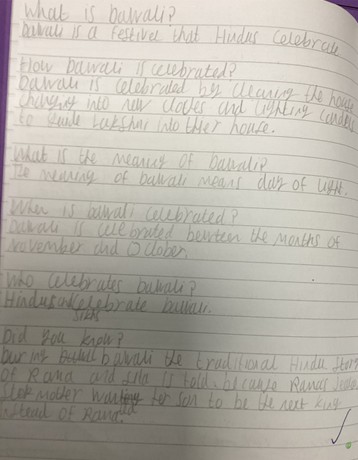 What is Dawali?
Dawali is a festivel that Hindus celebrate
How Dawali is celebrated?
Dawali is celebrated by cleaning the house
changing into new clothes and lighting candels
to Lakshmi into their house.
What is the meaning of Dawali?
The meaning of Dawali means day of light.
When is Dawali celebrated?
Dawali is celebrated between the months of
November and October.
Who celebrates Dawali?
Hindus celebrate Dawali.
Sikhs
Did you know?
During Dawali the traditional Hindu Story
of Rama and Sita is told, because Rama's
Step mother wanted her son to be the next king
instead of Rama.